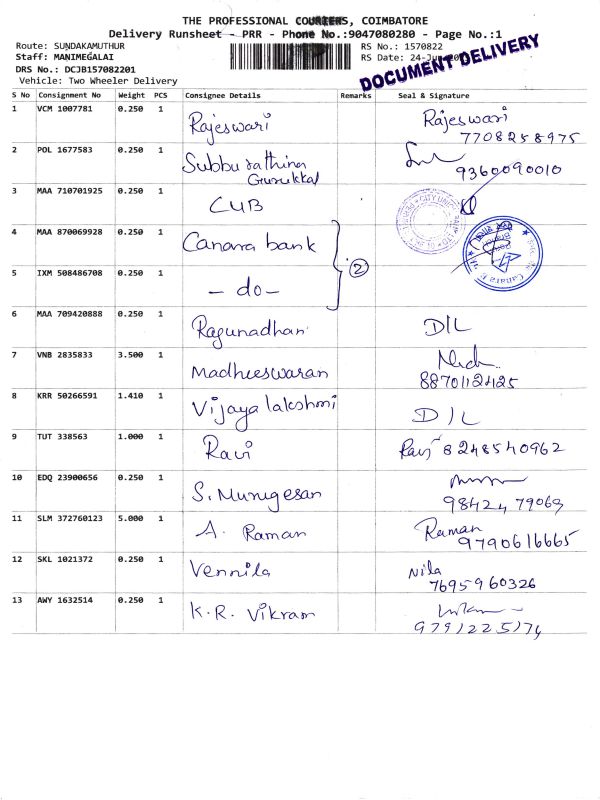 THE PROFESSIONAL COURIERS, COIMBATORE
Delivery Runsheet - PRR - Phone No.:9047080280 - Page No.:1
Route: SUNDAKAMUTHUR
RS No.: 1570822
Staff: MANIMEGALAI
RS Date: 24-Ju
DOCUMENT DELIVERY
DRS No.: DCJB157082201
Vehicle: Two Wheeler Delivery
S No Consignment No Weight PCS Consignee Details Remarks Seal & Signature
1 VCM 1007781 0.250 1 Rajeswari Rajeswari
7708258975
2 POL 1677583 0.250 1 Subburathina
Gurukkal
9360090010
3 MAA 710701925 0.250 1 CUB
4 MAA 870069928 0.250 1 Canara bank
2
5 IXM 508486708 0.250 1 - do -
6 MAA 709420888 0.250 1 Ragunadhan D/L
7 VNB 2835833 3.500 1 Madheeswaran
8870112425
8 KRR 50266591 1.410 1 Vijaya lakshmi D/L
9 TUT 338563 1.000 1 Ravi Ravi 8248540962
10 EDQ 23900656 0.250 1 S. Murugesan
98424 79069
11 SLM 372760123 5.000 1 A. Raman Raman
9790616665
12 SKL 1021372 0.250 1 Vennila Nila
7695960326
13 AWY 1632514 0.250 1 K.R. Vikram
9791225174